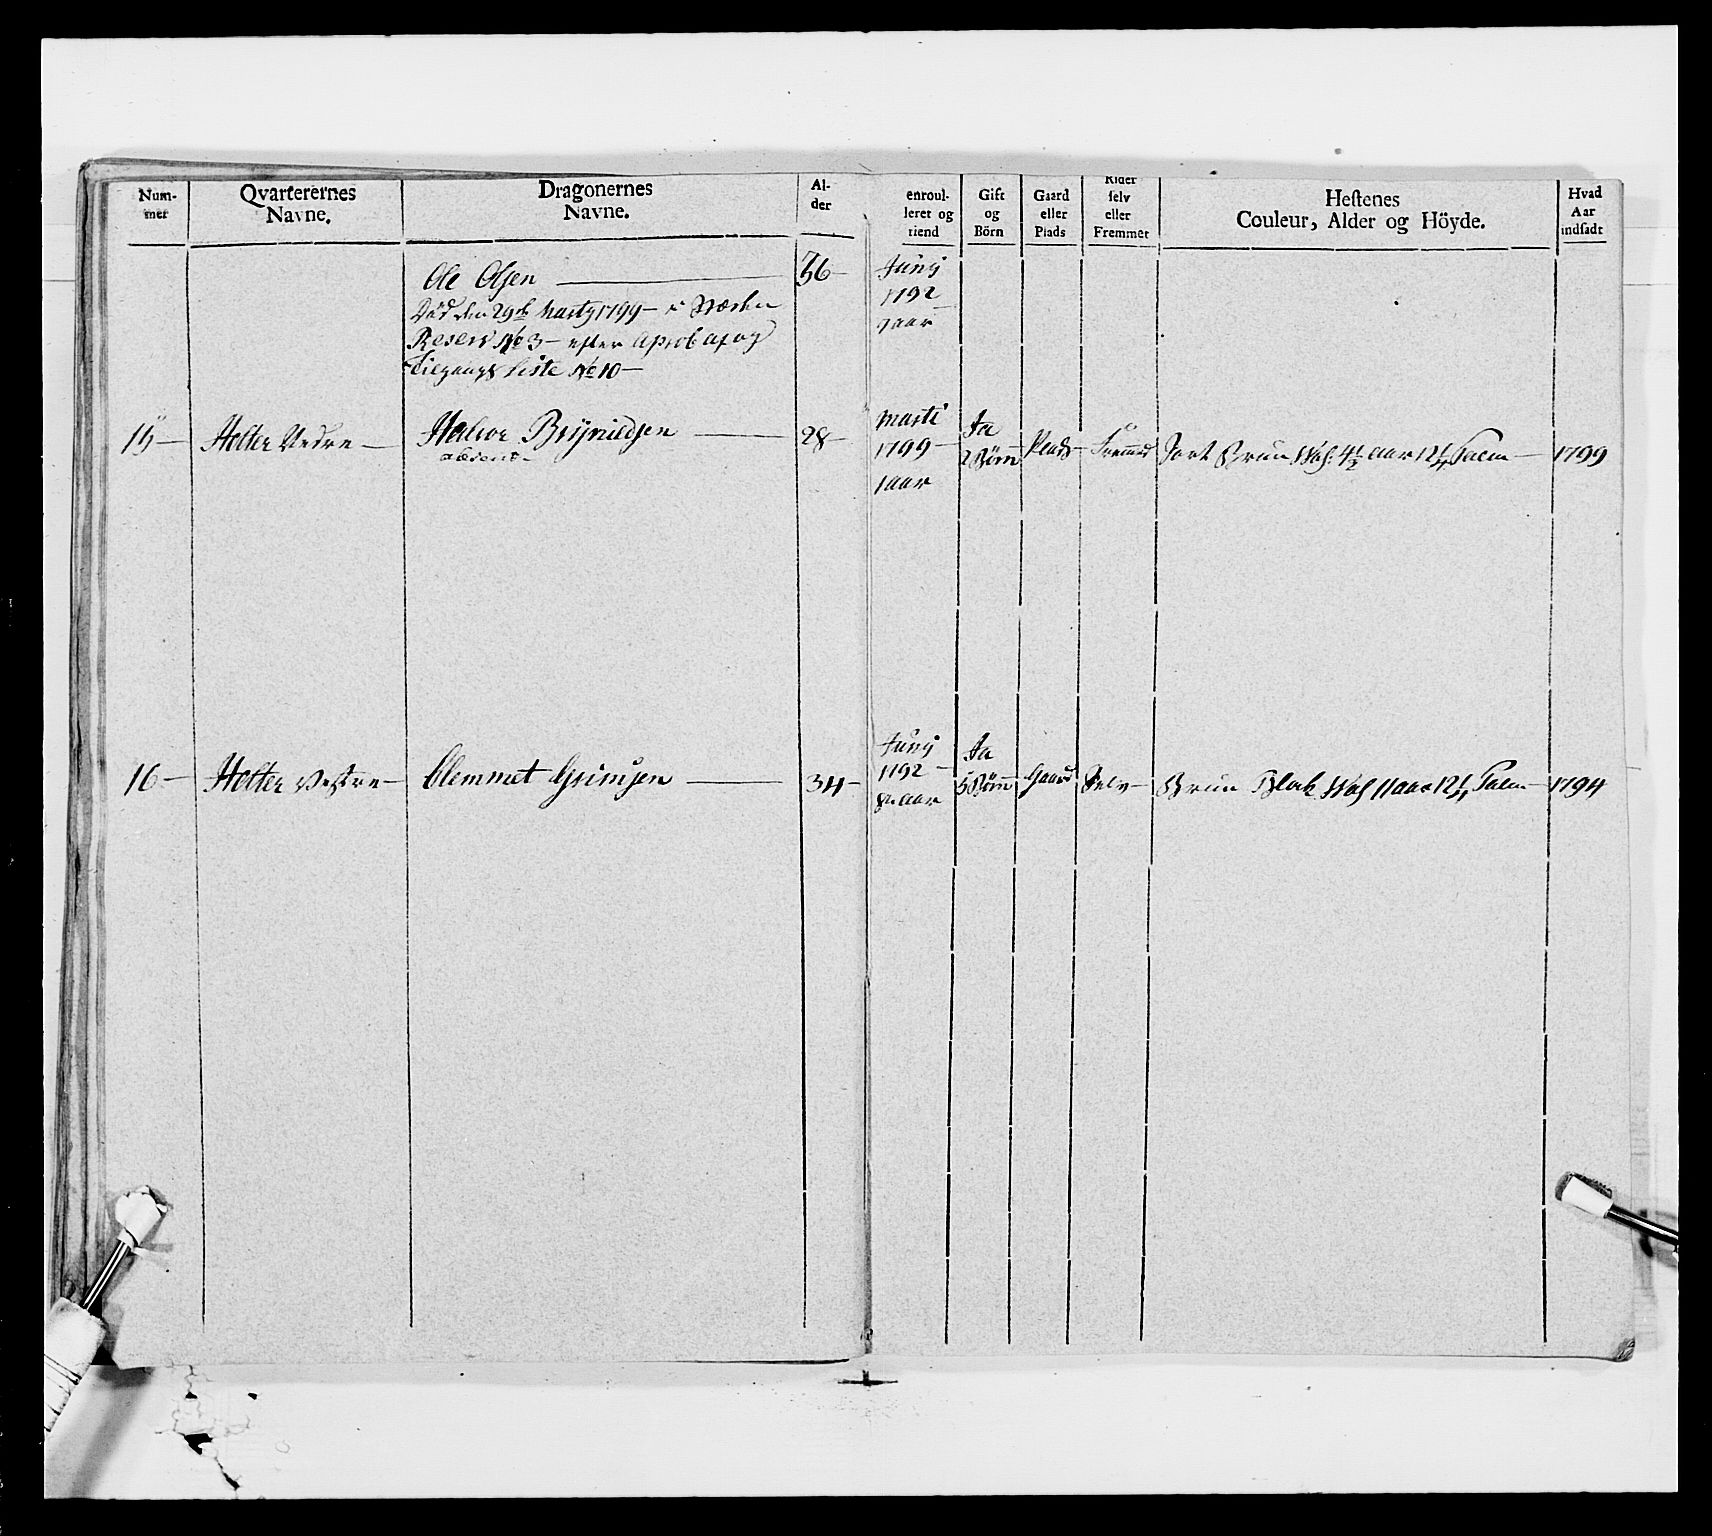 Num-
mer
Qvarterernes
Navne.
Dragonernes
Navne.
Al-
der
enroul-
leret og
tiend
Gift
og
Börn
Gaard
eller
Plads
Rider
selv
eller
Fremmet
Hestenes
Couleur, Alder og Höyde.
Hvad
Aar
indsadt
Ole Olsen — 36 —
Död den 29de Marty 1799 —
Reserv No 3 — efter Aprob af og
Tilgangs Liste No 10 —
Junij
1792
7 aar
15 — Holter Nedre — Halvor Brijnildsen — 28 —
absent —
Marti
1799 —
1 aar
Ja
2 Börn
Plads — Fremmed Sort Brun Wal: 4½ aar 12¼ Palm — 1799
16 — Holter Vestre — Clemmet Grimsen — 34 —
Junij
1792 —
8 aar
Ja
5 Börn
Gaard Selv — Brun Blak Wal 11 aar 12¼ Palm — 1794